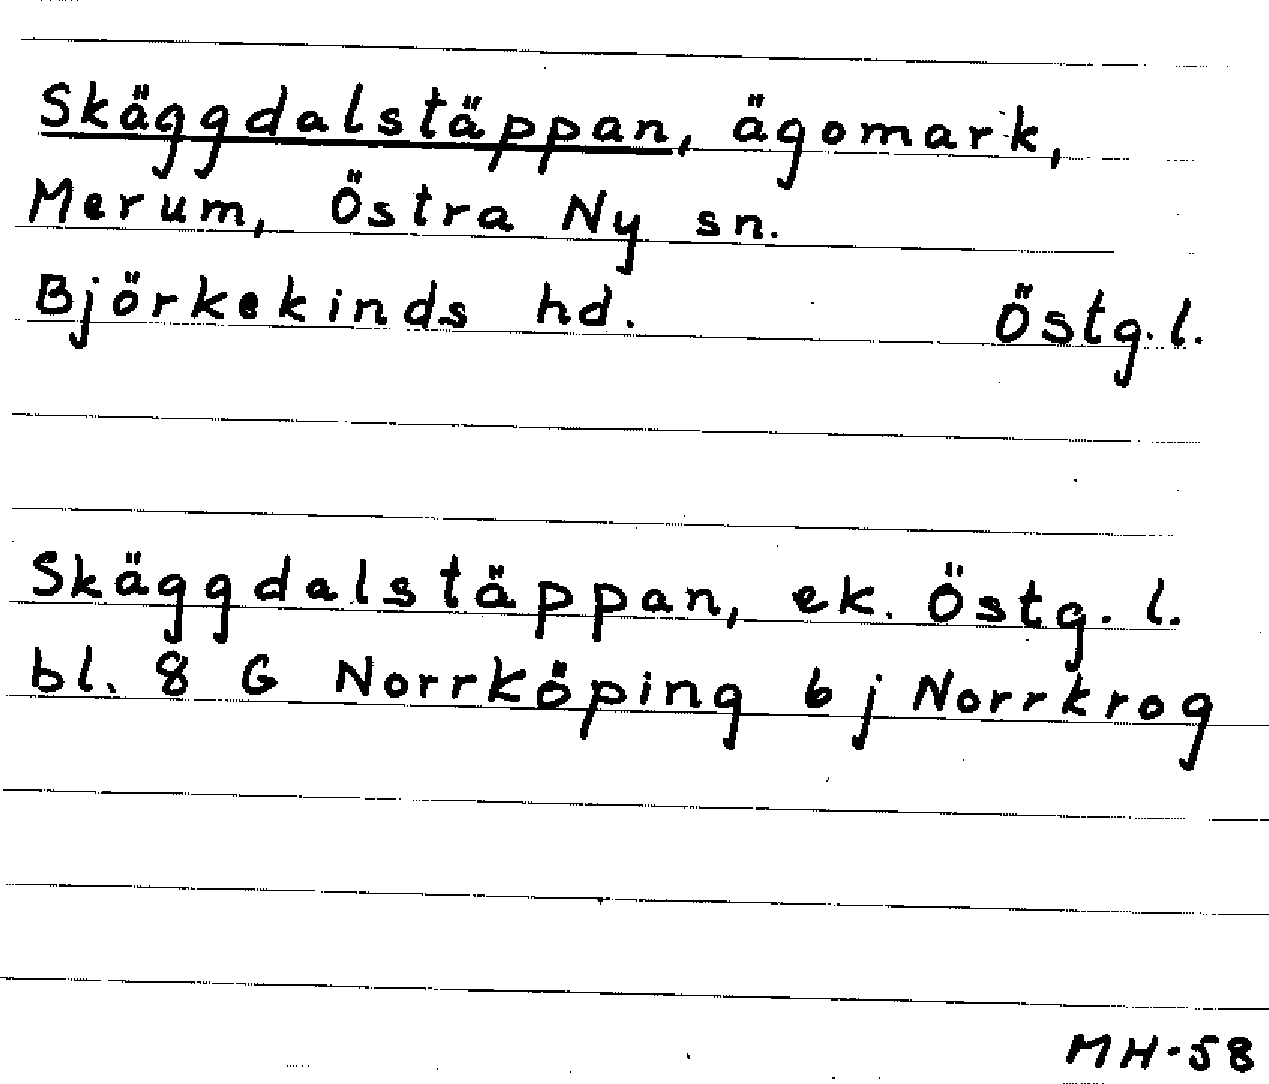 Skäggdalstäppan, ägomark,
Merum, Östra Ny sn.
Björkekinds hd. Östg.l.
Skäggdalstäppan, ek. Östg. l.
bl. 8 G Norrköping 6 j Norrkrog
MH-58